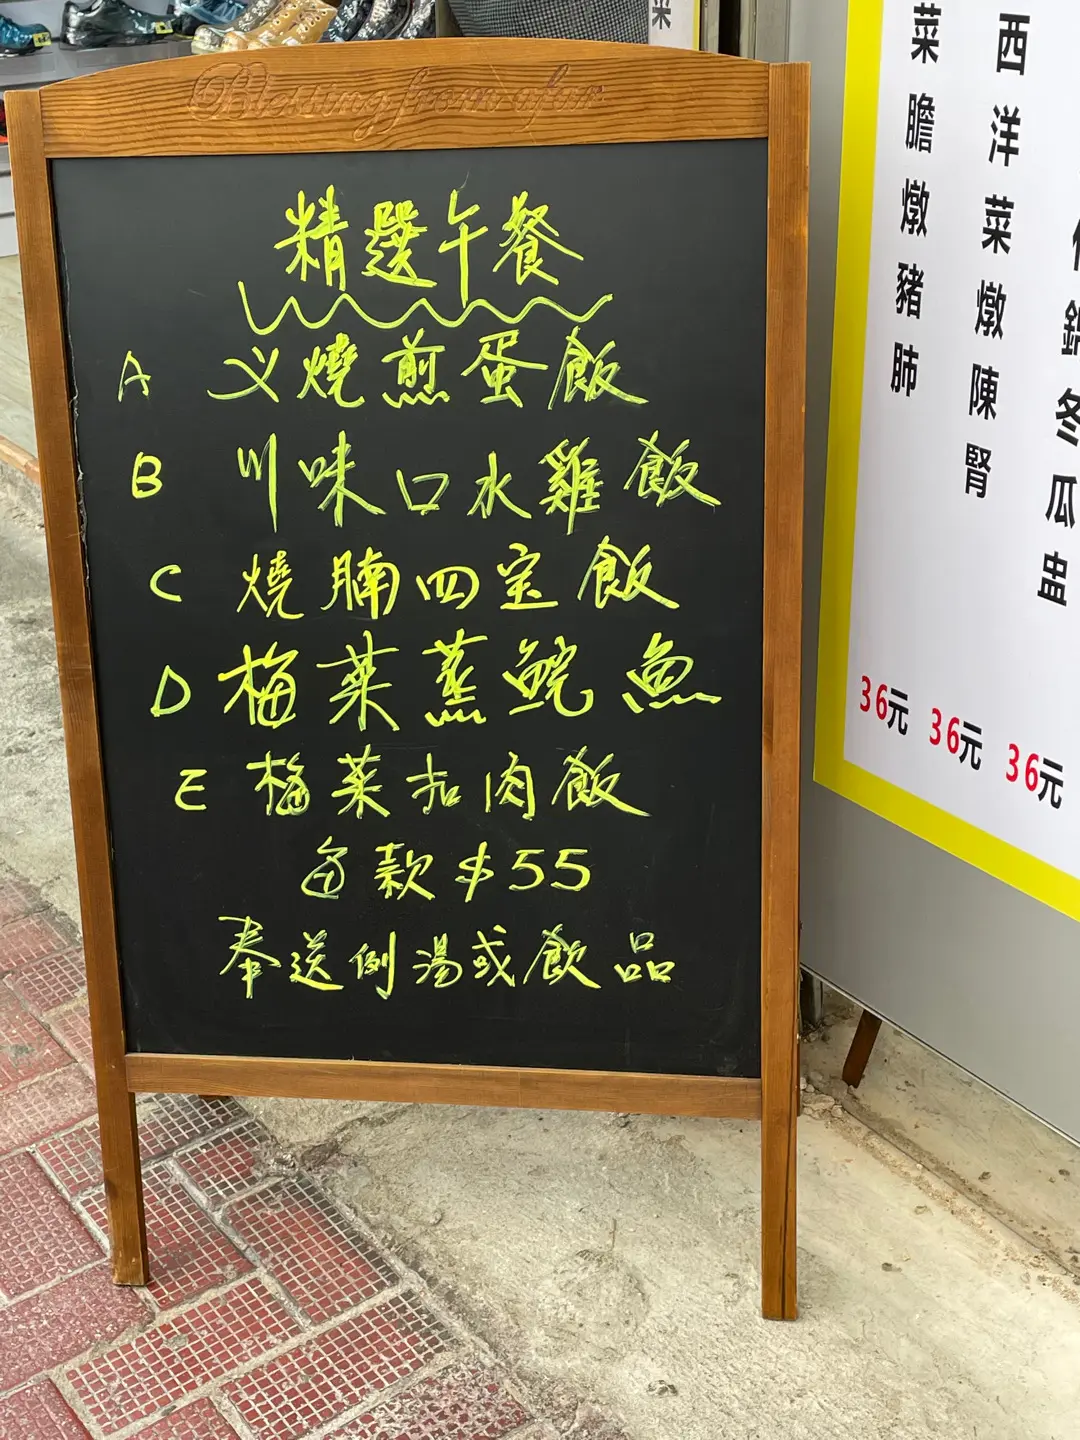 Blessing from afar
精選午餐
A 义燒煎蛋飯
B 川味口水雞飯
C 燒腩四宝飯
D 梅菜蒸鯇魚
E 梅菜扣肉飯
每款 $55
奉送例湯或飲品
西洋菜燉陳腎
菜膽燉豬肺
冬瓜盅
36元 36元 36元